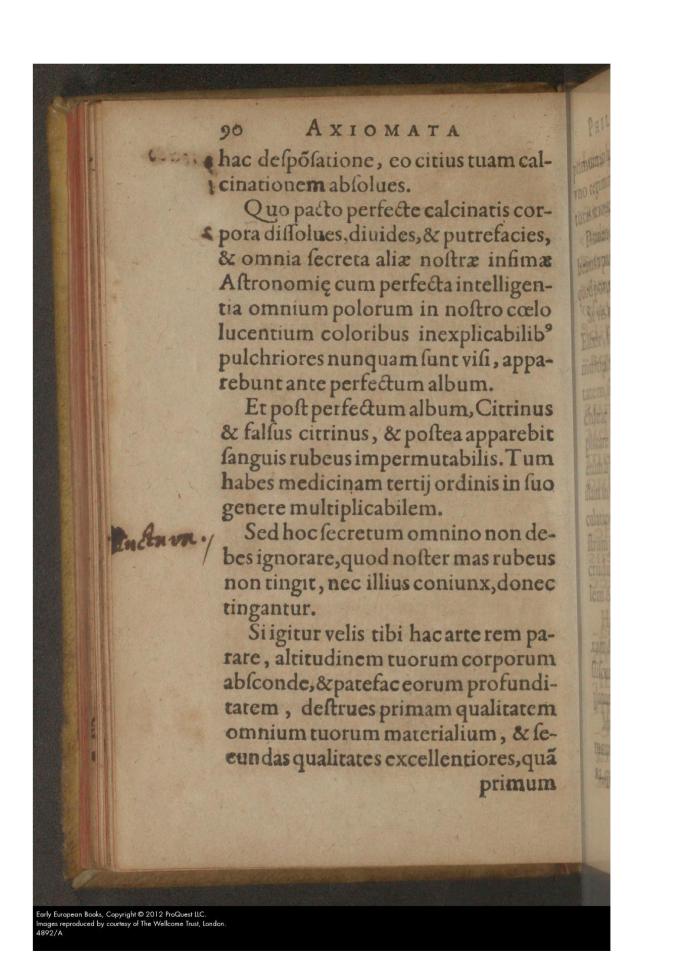 90 AXIOMATA
hac deſpõſatione, eo citius tuam cal-
cinationem abſolues.
Quo pacto perfecte calcinatis cor-
pora diſſolues, diuides, & putrefacies,
& omnia ſecreta aliæ noſtræ infimæ
Aſtronomię cum perfecta intelligen-
tia omnium polorum in noſtro cœlo
lucentium coloribus inexplicabilibꝰ
pulchriores nunquam ſunt viſi, appa-
rebunt ante perfectum album.
Et poſt perfectum album, Citrinus
& falſus citrinus, & poſtea apparebit
ſanguis rubeus impermutabilis. Tum
habes medicinam tertij ordinis in ſuo
genere multiplicabilem.
Sed hoc ſecretum omnino non de-
bes ignorare, quod noſter mas rubeus
non tingit, nec illius coniunx, donec
tingantur.
Si igitur velis tibi hac arte rem pa-
rare, altitudinem tuorum corporum
abſconde, & patefac eorum profundi-
tatem, deſtrues primam qualitatem
omnium tuorum materialium, & ſe-
cundas qualitates excellentiores, quã
primum
Early European Books, Copyright © 2012 ProQuest LLC.
Images reproduced by courtesy of The Wellcome Trust, London.
4892/A